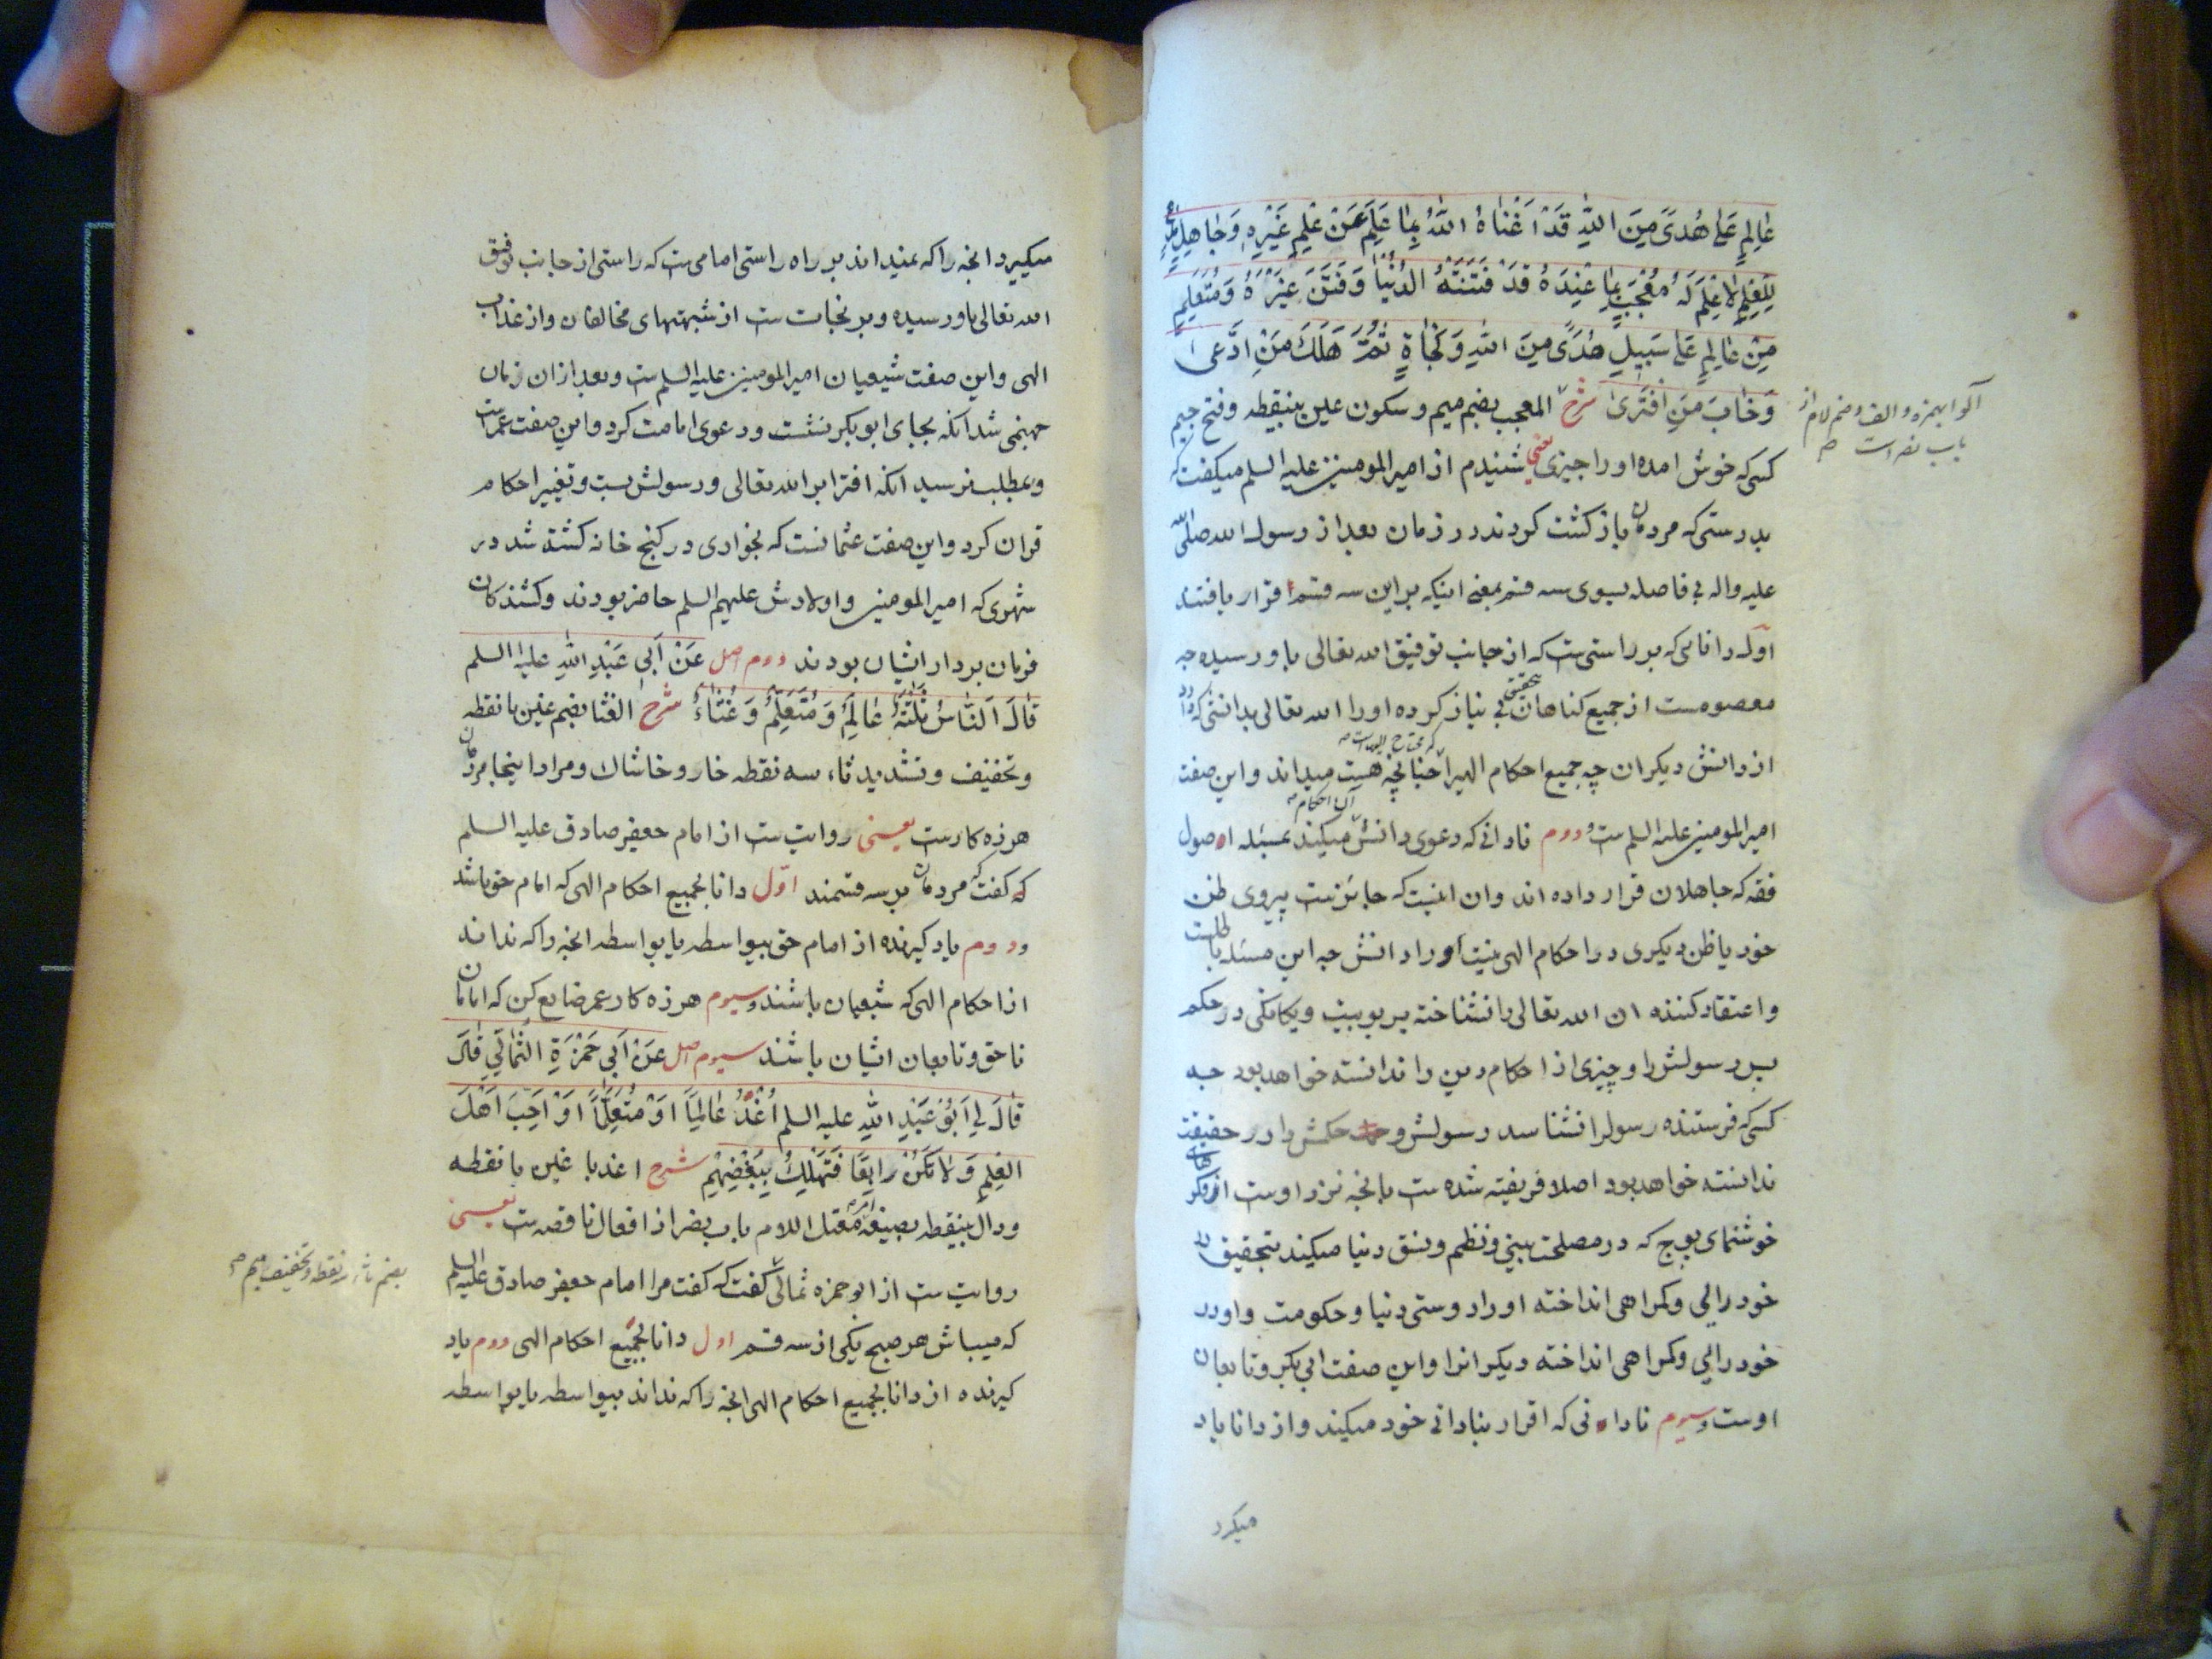 عٰالِمٍ عَلىٰ هُدىً مِنَ اللّٰهِ قَدْ اَغْنٰاهُ اللّٰهُ بِمٰا عَلِمَ عَنْ عِلْمِ غَيْرِهِ وَجٰاهِلٍ مُدَّعٍ
لِلْعِلْمِ لاٰعِلْمَ لَهُ مُعْجَبٍ بِمٰا عِنْدَهُ قَدْ فَتَنَتْهُ الدُّنْيٰا وَفَتَنَ غَيْرَهُ وَمُتَعَلِّمٍ
مِنْ عٰالِمٍ عَلىٰ سَبيلِ هُدىً مِنَ اللّٰهِ وَنَجٰاةٍ ثُمَّ هَلَكَ مَنِ ادَّعى
وَخٰابَ مَنِ افْتَرىٰ شرح المعجب بضم ميم و سكون عين بينقطه و فتح جيم
كسى كه خوش امده او را چيزى يعنى شنيدم از امير المومنين عليه السلم ميكفت كه
بدرستى كه مردمان باز كشت كردند در زمان بعد از رسول الله صلى الله
عليه واله بى فاصله بسوى سه قسم بمعنى اينكه براين سه قسم قرار يافتند
اول دانائى كه بر راستى ست كه از جانب توفيق الله تعالى باو رسيده چه
معصومست از جميع كناهان بتحقيق بى نياز كرده او را الله تعالى بدانشى كه دارد
از دانش ديكران چه جميع احكام الهى را چنانچه هست ميداند و اين صفت
امير المومنين عليه السلم ست و دوم نادانى كه دعوى دانش آن احكام ميكند بمسئله اصول
فقه كه جاهلان قرار داده اند وان اينست كه جائزست پيروى ظن
خود يا ظن ديكرى در احكام الهى نيست او را دانش چه اين مسئله باطلست
و اعتقاد كننده ان الله تعالى را نشناخته بربوبيت و يكانكى در حكم
پس رسولش را و چيزى از احكام دين را ندانسته خواهد بود چه
كسى كه فرستنده رسول را نشناسد رسولش و حكمش را در حقيقت
ندانسته خواهد بود اصلا فريفته شده ست بانچه نزد اوست از فكر
خوشنماى پوچ كه در مصلحت بينى و نظم و نسق دنيا ميكند بتحقيق
خود رايي و كمراهى انداخته او را دوستى دنيا و حكومت و او در
خود رايي و كمراهى انداخته ديكرانرا و اين صفت ابى بكر و تابعان
اوست و سيوم نادانى كه اقرار بنادانى خود ميكند و از دانا ياد
ميكرد
باب نصر است
ميكيرد انچه را كه نميداند بر راه راستى امامى ست كه راستى از جانب توفيق
الله تعالى باو رسيده و بر نجات ست از شبهتهاى مخالفان و از عذاب
الهى و اين صفت شيعيان امير المومنين عليه السلم ست و بعد از ان زمان
جهنمى شد انكه بجاى ابو بكر نشست و دعوى امامت كرد و اين صفت عمرست
و بمطلب نرسيد انكه افترا بر الله تعالى و رسولش بست و تغيير احكام
قران كرد و اين صفت عثمانست كه بخوارى در كنج خانه كشته شد در
شهرى كه امير المومنين و اولادش عليهم السلم حاضر بودند و كشندكان
فرمان بردار ايشان بودند دوم اصل عَنْ اَبي عَبْدِ اللّٰهِ عليه السلم
قٰالَ اَلنّٰاسُ ثَلٰثَةٌ عٰالِمٌ وَمُتَعَلِّمٌ وَغُثٰاءٌ شرح الغثا بضم غين بانقطه
و تخفيف و تشديد ثاء سه نقطه خار و خاشاك و مراد اينجا مردمان
هرزه كارست يعنى روايت ست از امام جعفر صادق عليه السلم
كه كفت كه مردمان بر سه قسمند اوّل دانا بجميع احكام الهى كه امام حق باشد
و دوم ياد كيرنده از امام حق بيواسطه يا بواسطه انچه را كه نداند
از احكام الهى كه شيعيان باشند و سيوم هرزه كار عمر ضايع كن كه امامان
ناحق و تابعان ايشان باشند سيوم اصل عَنْ اَبي حَمْزَةِ الثُّمٰالِيِّ قٰالَ
قٰالَ لي اَبُو عَبْدِ اللّٰهِ عليه السلم اُغْدُ عٰالِماً اَوْ مُتَعَلِّماً اَوْ اَحِبَّ اَهْلَ
الْعِلْمِ وَلاٰ تَكُنْ رٰابِعًا فَتَهْلِكَ بِبُغْضِهِمْ شرح اغد با غين بانقطه
و دال بينقطه بصيغه امر معتل اللام باب نصر از افعال ناقصه ست يعنى
روايت ست از ابو حمزه ثمالى كفت كه كفت مرا امام جعفر صادق عليه السلم
كه ميباش هر صبح يكى از سه قسم اول دانا بجميع احكام الهى دوم ياد
كيرنده از دانا بجميع احكام الهى انچه را كه نداند بيواسطه يا بواسطه